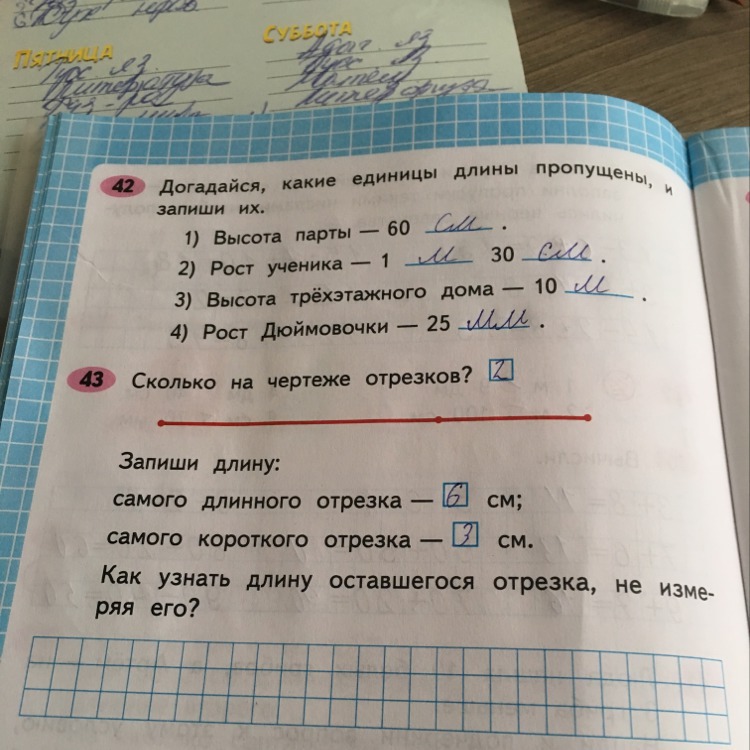 ПЯТНИЦА
СУББОТА
Литература
42 Догадайся, какие единицы длины пропущены, и
запиши их.
1) Высота парты — 60 см .
2) Рост ученика — 1 м 30 см .
3) Высота трёхэтажного дома — 10 м .
4) Рост Дюймовочки — 25 мм .
43 Сколько на чертеже отрезков? 2
Запиши длину:
самого длинного отрезка — 6 см;
самого короткого отрезка — 3 см.
Как узнать длину оставшегося отрезка, не изме-
ряя его?